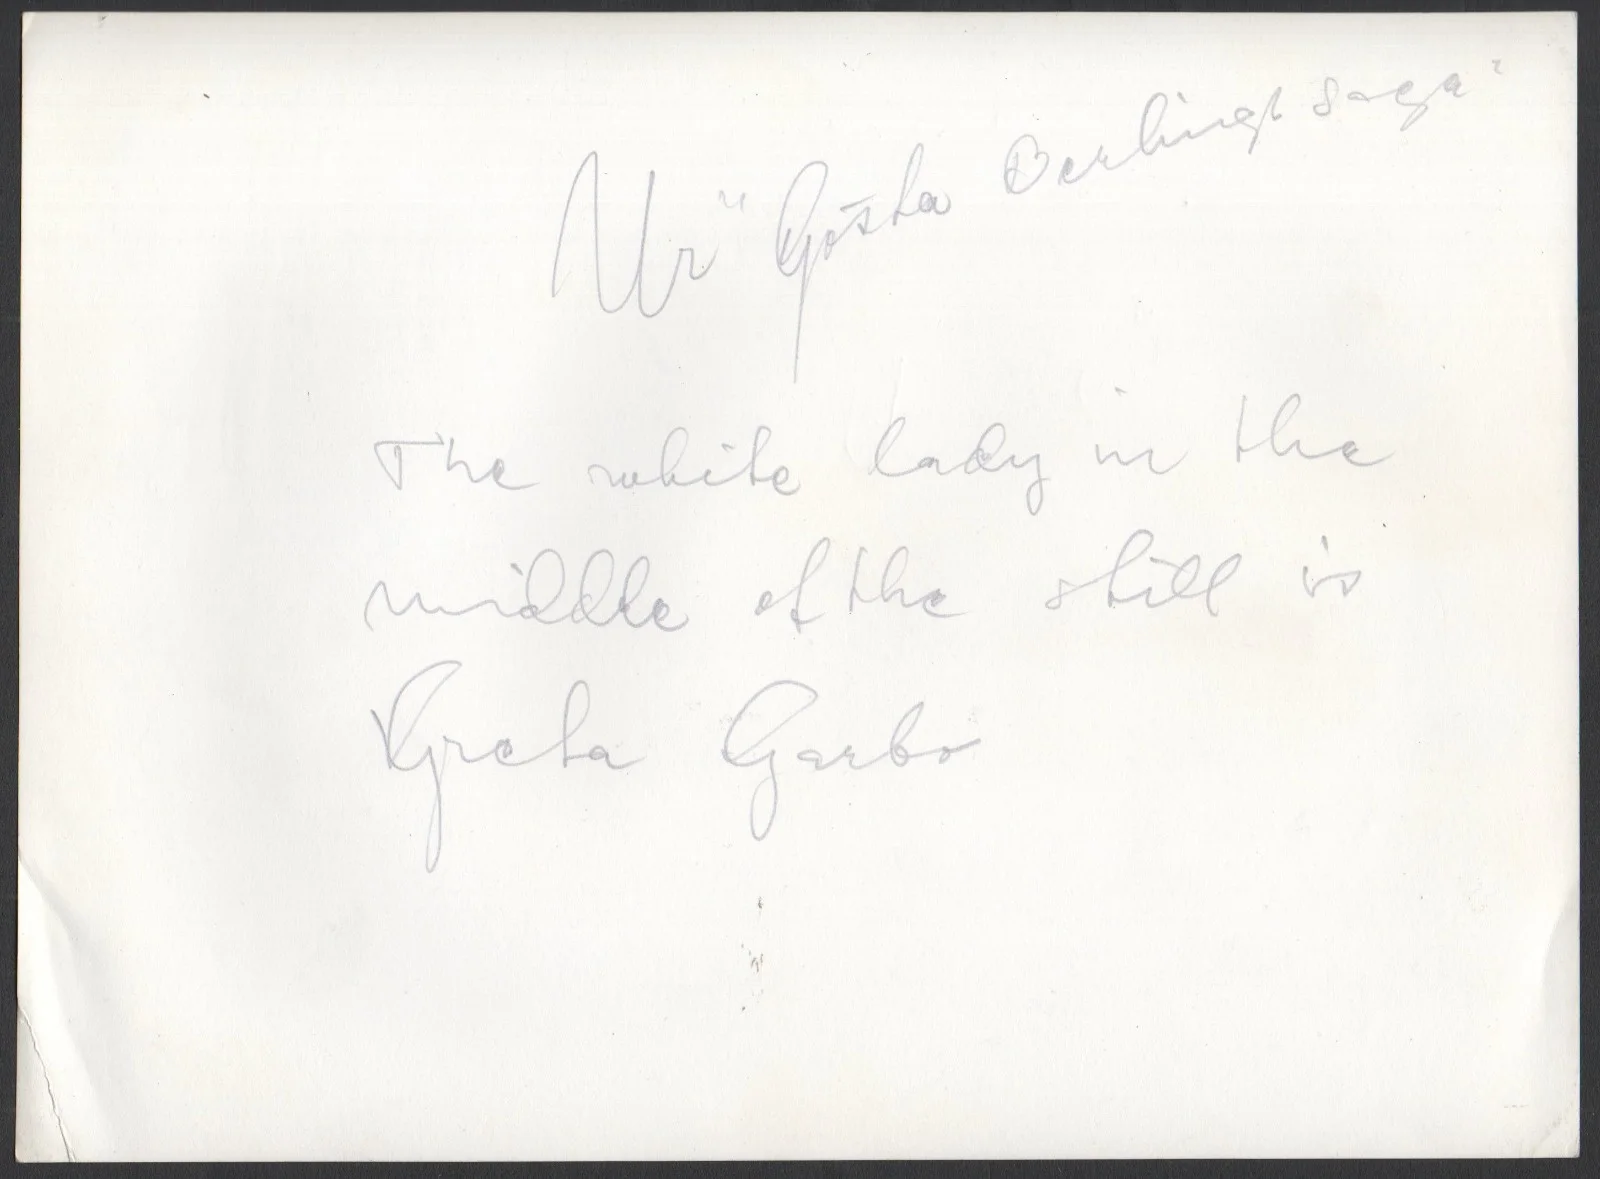 Ur "Gösta Berlings saga"
The white lady in the
middle of the still is
Greta Garbo